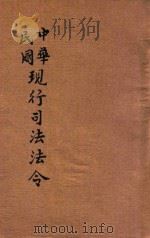 中華民國現行司法法令